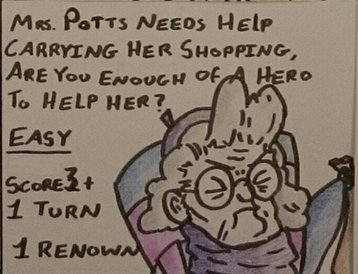 MRS. POTTS NEEDS HELP
CARRYING HER SHOPPING,
ARE YOU ENOUGH OF A HERO
TO HELP HER?
EASY
SCORE 3+
1 TURN
1 RENOWN